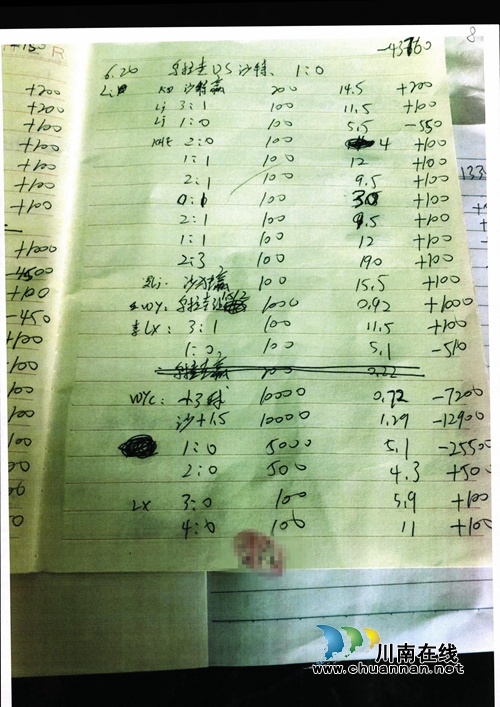 8
-43760
6.20 乌拉圭VS沙特. 1:0
沙特赢 200 14.5 +200
Lj 3:1 100 11.5 +100
Lj 1:0 100 5.5 -550
2:0 100 4 +100
1:1 100 12 +100
2:1 100 9.5 +100
0:1 100 30 +100
2:1 100 9.5 +100
1:1 100 12 +100
2:3 100 190 +100
沙特赢 100 15.5 +100
WY: 乌拉圭 1000 0.92 +1000
李LX: 3:1 100 11.5 +100
1:0 100 5.1 -510
乌拉圭赢 200 0.22
WYC: +3球 10000 0.72 -7200
沙+1.5 10000 1.29 -12900
1:0 5000 5.1 -25500
2:0 500 4.3 +500
LX 3:0 100 5.9 +100
4:0 100 11 +100
+150
R
+200
+200
+100
+100
+100
+100
+100
+1000
-4500
+100
-450
+100
100
100
100
100
00
00
133
川南在线
www.chuannan.net